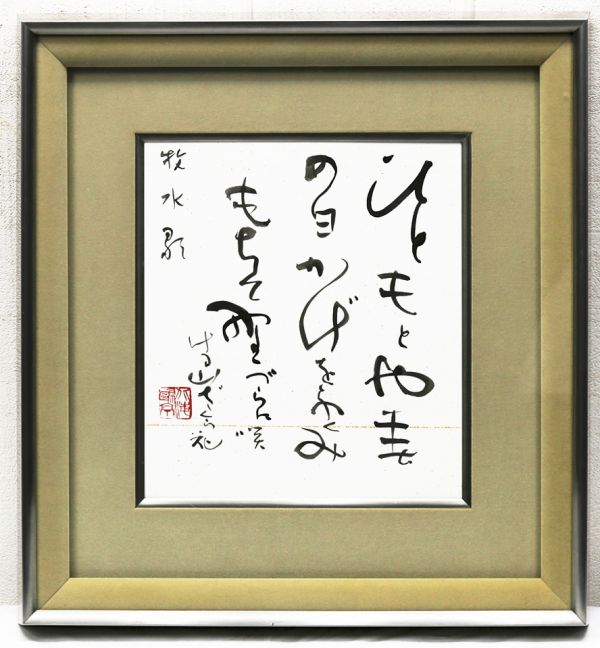 ひともとや春
の日かげをふくみ
もちて野づらに咲
ける山ざくら花
牧水